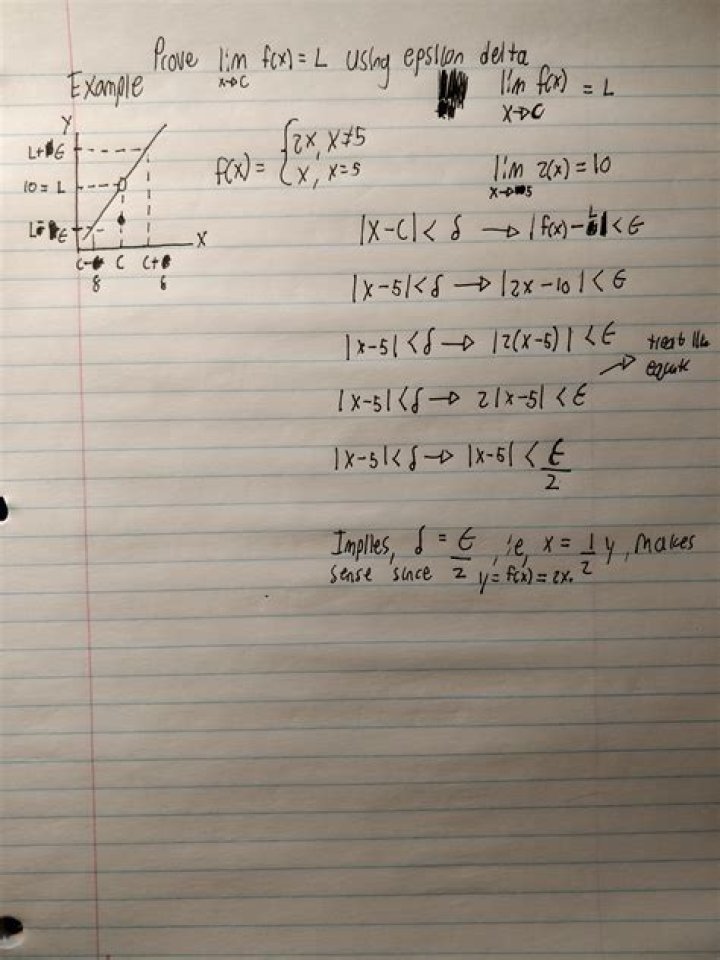 Prove lim f(x) = L using epsilon delta
x→c
Example
lim f(x) = L
x→c
Y
L+ϵ
10 = L
L-ϵ
X
c- c c+
8 6
f(x) = {2x, x≠5
x, x=5
lim 2(x) = 10
x→5
|x-c| < δ → |f(x)-L| < ϵ
|x-5| < δ → |2x-10| < ϵ
|x-5| < δ → |2(x-5)| < ϵ
→ treat like
|x-5| < δ → 2|x-5| < ϵ
|x-5| < δ → |x-5| < ϵ/2
Implies, δ = ϵ/2, ie, x = 1/2 y, makes
sense since y = f(x) = 2x.